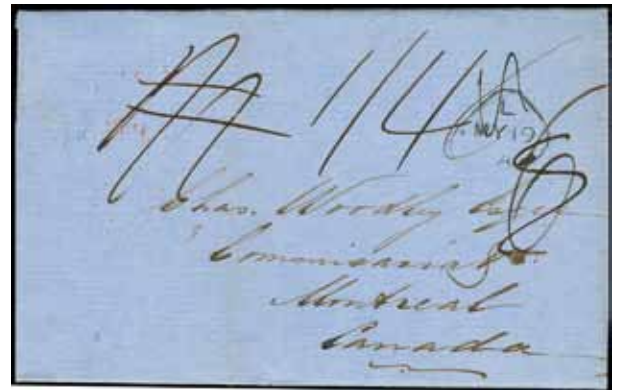 1/4
L
MY 19
8
Chas. Woodley Esqr
Commissariat
Montreal
Canada